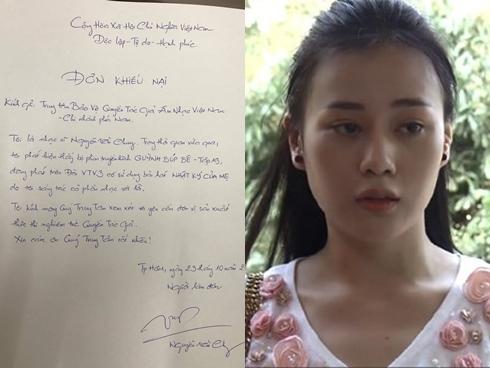 Cộng Hòa Xã Hội Chủ Nghĩa Việt Nam
Độc lập - Tự do - Hạnh phúc
ĐƠN KHIẾU NẠI
Kính gửi: Trung tâm Bảo Vệ Quyền Tác Giả Âm Nhạc Việt Nam
- Chi nhánh phía Nam.
Tôi là nhạc sĩ Nguyễn Văn Chung. Trong thời gian vừa qua,
tôi phát hiện bộ phim truyền hình QUỲNH BÚP BÊ - Tập 13,
đang phát trên Đài VTV3 có sử dụng bài hát NHẬT KÝ CỦA MẸ
do tôi sáng tác có phần nhạc với lời.
Tôi kính mong Quý Trung Tâm xem xét và yêu cầu đơn vị sản xuất
thực thi nghiêm túc Quyền Tác Giả.
Xin cảm ơn Quý Trung Tâm rất nhiều!
Tp HCM, ngày 23 tháng 10 năm 2
Người làm đơn
Nguyễn Văn Ch